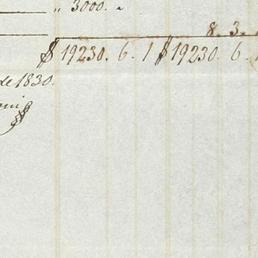 „ 3000. „
8. 3.
$ 19230. 6. 1 $ 19230. 6.
de 1830.